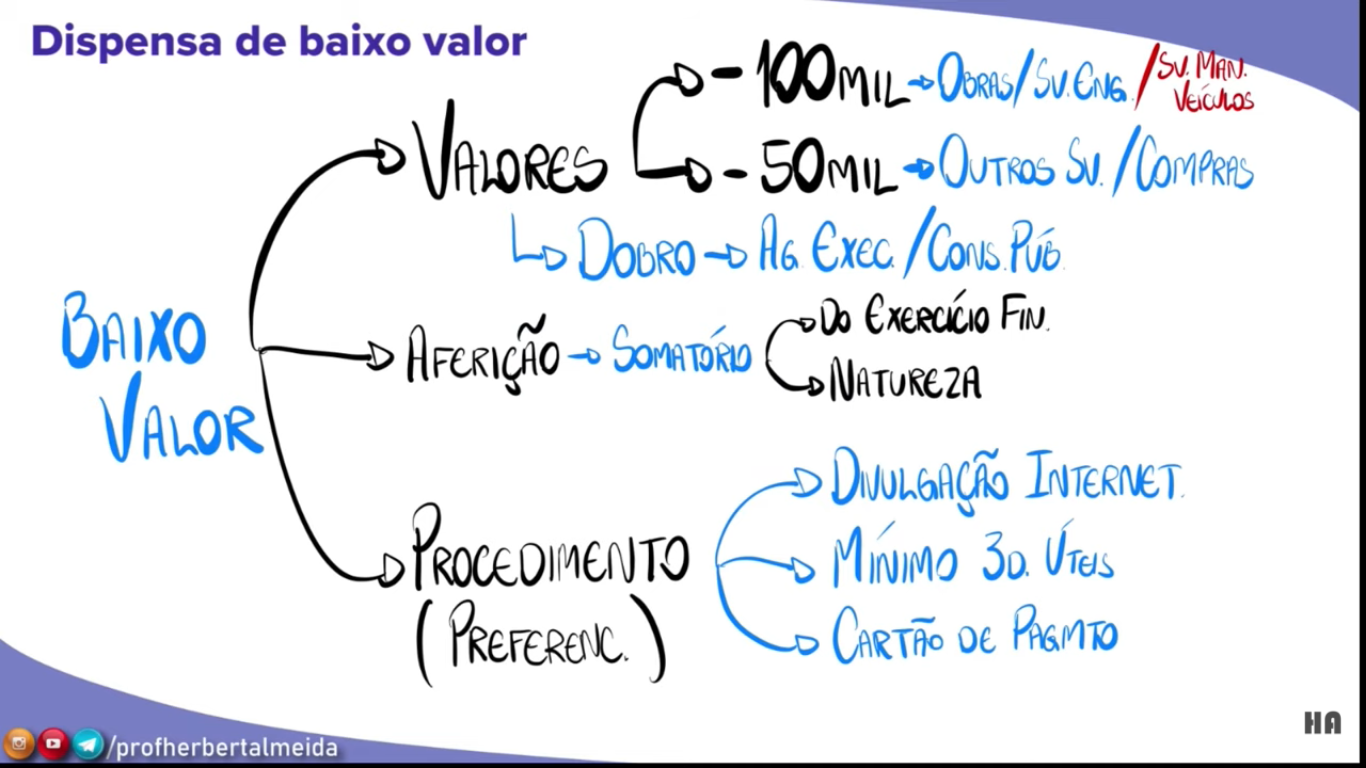 Dispensa de baixo valor
BAIXO
VALOR
VALORES
- 100 MIL → OBRAS/SV. ENG. /SV. MAN.
VEÍCULOS
- 50 MIL → OUTROS SV. /COMPRAS
DOBRO → AG. EXEC. /CONS. PÚB.
AFERIÇÃO → SOMATÓRIO
DO EXERCÍCIO FIN.
NATUREZA
PROCEDIMENTO
(PREFERENC.)
DIVULGAÇÃO INTERNET.
MÍNIMO 3D. ÚTEIS
CARTÃO DE PAGMTO
/profherbertalmeida
HA